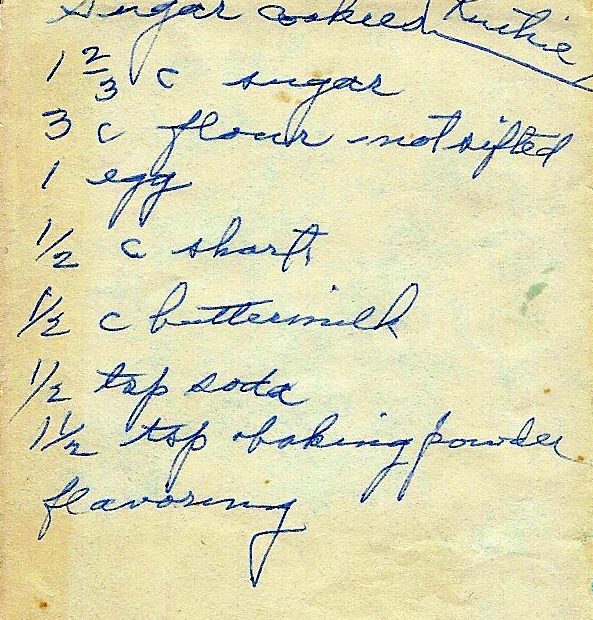 Sugar cookies Ruthie
1 2/3 c sugar
3 c flour not sifted
1 egg
1/2 c short.
1/2 c buttermilk
1/2 tsp soda
1 1/2 tsp baking powder
flavoring